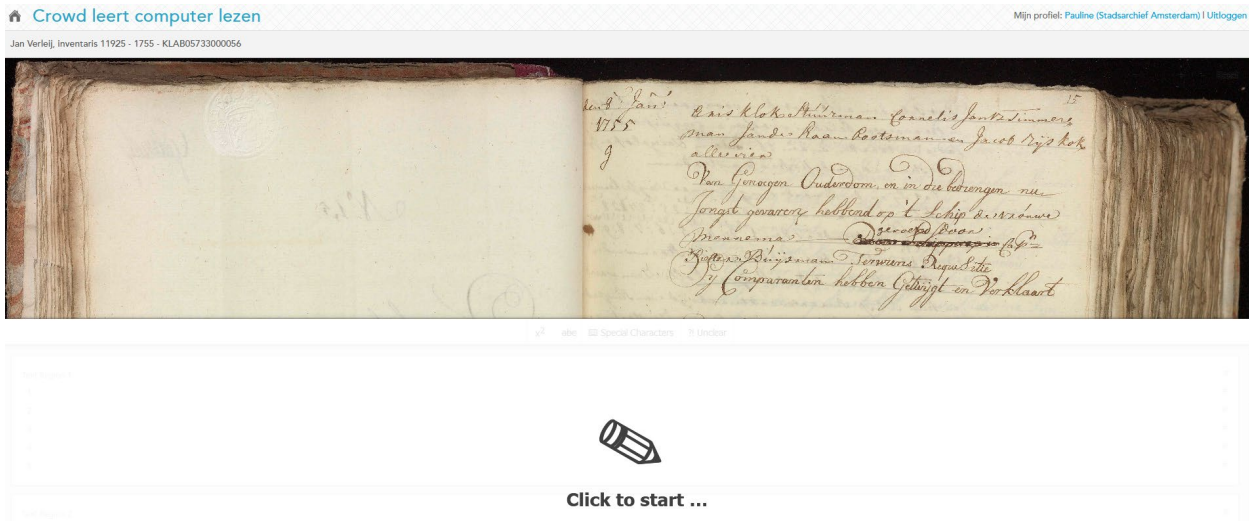 Crowd leert computer lezen
Mijn profiel: Pauline (Stadsarchief Amsterdam) | Uitloggen
Jan Verleij, inventaris 11925 - 1755 - KLAB05733000056
15
den 8 Jan
1755
g
Stuurman Cornelis Jantz Timmer
man Jan de Haan Bootsman en Jacob Rijs kok
alle vier
Van Genoegen Ouderdom, en in die
Jongst gevaren hebbend op 't Schip de vrouwe
Mennema genoemd
Pieter Buijsman Terwiens Requisitie
Sy Comparanten hebben Getuijgt en Verklaart
abc Special Characters Unclear
Click to start ...